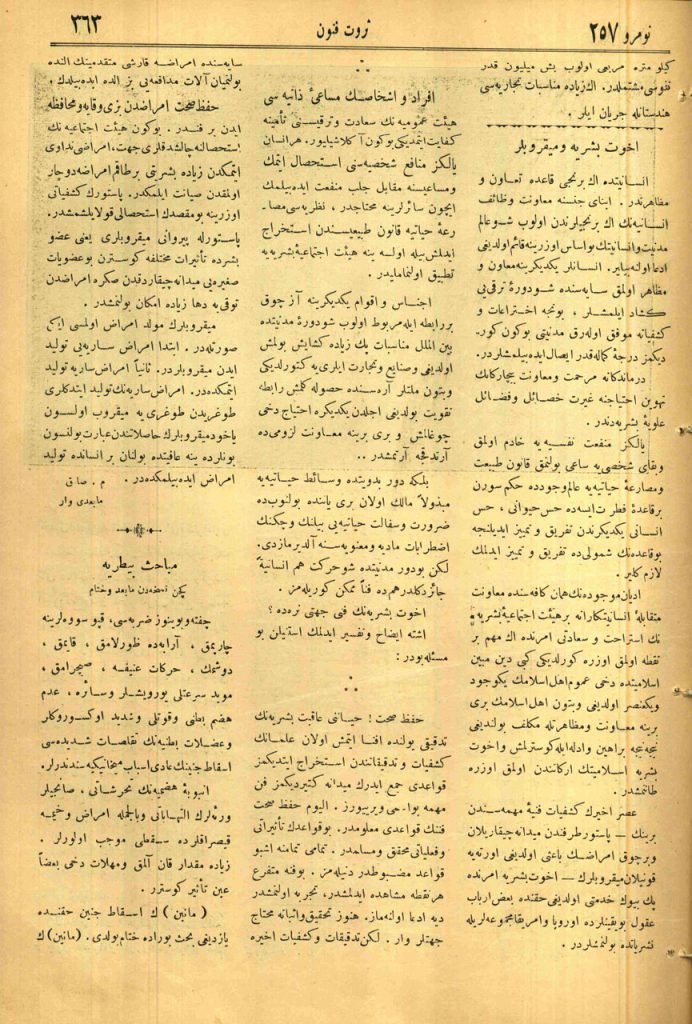 نومرو ٢٥٧
ثروت فنون
٣٦٣
كيلو متره مربعى اولوب بش ميليون قدر
نفوسى مشتملدر. اك زياده مناسبات تجاريه سى
هندستانله جريان ايلر .
اخوت بشريه وميقروبلر
انسانيتده اك برنجى قاعده تعاون و
مظاهرتدر . ابناى جنسنه معاونت وظائف
انسانيه نك اك برنجيلرندن اولوب شو عالم
مدنيت وانسانيتك بو اساس اوزرينه قائم اولديغى
ادعا اولنه بيلير. انسانلر يكديكرينه معاون و
مظاهر اولمق سايه سنده شو دورۀ ترقى يى
كشاد ايلمشلر ، بونجه اختراعات و
كشفياته موفق اوله رق مدنيتى بوكون كور.
ديكمز درجۀ كماله قدر ايصال ايده بيلمشلردر.
درماندكانه مرحمت ومعاونت بيچاركانك
تهوين احتياجنه غيرت خصائل وفضائل
علويۀ بشريه دندر .
يالكز منفعت نفسيه يه خادم اولمق
وبقاى شخصى يه ساعى بولنمق قانون طبيعت
ومصارعۀ حياتيه يه عالم وجودده حكم سورن
بر قاعدۀ فطرت ايسه ده حس حيوانى ، حس
انسانى يكديكرندن تفريق و تمييز ايديلنجه
بو قاعده نك شمولى ده تفريق و تمييز ايدلمك
لازم كلير .
اديان موجوده نك همان كافه سنده معاونت
متقابلۀ انسانيتكارانه بر هيئت اجتماعيۀ بشريه
نك استراحت و سعادتى امرنده اك مهم بر
نقطه اولمق اوزره كورلديكى كبى دين مبين
اسلاميتده دخى عموم اهل اسلامك يكوجود
ويكعنصر اولديغى وبتون اهل اسلامك برى
برينه معاونت ومظاهرتله مكلف بولنديغى
نيجه نيجه براهين وادله ايله كوسترلمش واخوت
بشريه اسلاميتك اركانندن اولمق اوزره
طانمشدر .
عصر اخيرك كشفيات فنيۀ مهمه سندن
برينك — پاستور طرفندن ميدانه چيقاريلان
وبرچوق امراضك باعثى اولديغى اورته يه
قونيلان ميقروبلرك — اخوت بشريه امرنده
پك بيوك خدمتى اولديغى حقنده بعض ارباب
عقول بو يقينلرده اوروپا وامريقا مجموعه لريله
نشرياتده بولنمشلردر .
افراد و اشخاصك مساعئ ذاتيه سى
هيئت عموميه نك سعادت وترقيسنى تأمينه
كفايت ايتمديكى بوكون آكلاشيليور. هر انسان
يالكز منافع شخصيه سنى استحصال ايتمك
ومساعيسنه مقابل جلب منفعت ايده بيلمك
ايچون سائرلرينه محتاجدر ، نظريه سى مصا-
رعۀ حياتيه قانون طبيعيسندن استخراج
ايدلمش بيله اولسه ينه هيئت اجتماعيۀ بشريه يه
تطبيق اولنمامليدر .
اجناس و اقوام يكديكرينه آز چوق
بر رابطه ايله مربوط اولوب شو دورۀ مدنيتده
بين الملل مناسبات پك زياده كشايش بولمش
اولديغى وصنايع وتجارت ايلرى يه كتورلديكى
وبتون ملتلر آره سنده حصوله كلمش رابطه
تقويت بولديغى اجلدن يكديكره احتياج دخى
چوغالمش و برى برينه معاونت لزومى ده
آرتدقجه آرتمشدر ..
بلكه دور بدويتده وسائط حياتيه يه
مبذولاً مالك اولان برى ياننده بولنوب ده
ضرورت وسفالت حياتيه يى بيلنك وچكنك
اضطرابات ماديه ومعنويه سنه آلديرمازدى.
لكن بو دور مدنيتده شو حركت هم انسانيةً
جائز دكلدر هم ده فناً ممكن كوريله مز .
اخوت بشريه نك فنى جهتى نره ده ؟
اشته ايضاح وتفسير ايدلمك استنيلن بو
مسئله بودر :
حفظ صحت ! حياتنى عاقبت بشريه نك
تدقيق يولنده افنا ايتمش اولان علمانك
كشفيات و تدقيقاتندن استخراج ايتديكمز
قواعدى جمع ايدرك ميدانه كتيرديكمز فن
مهمه بو اسمى ويرييورز . اليوم حفظ صحت
فننك قواعدى معلومدر. بو قواعدك تأثيراتى
وفعلياتى محقق ومسلمدر. تمامى تمامنه اشبو
قواعد مضبوطدر دنيله مز . بو فنه متفرع
هر نقطه مشاهده ايدلمشدر، تجربه اولنمشدر
ديه ادعا اولنه ماز. هنوز تحقيق واثباته محتاج
جهتلر وار . لكن تدقيقات وكشفيات اخيره
سايه سنده امراضه قارشى متقدمينك النده
بولنميان آلات مدافعه يى بز الده ايده بيلدك.
حفظ صحت امراضدن بزى وقايه ومحافظه
ايدن بر فندر . بوكون هيئت اجتماعيه نك
استحصالنه چاليشديغى جهت، امراضى تداوى
ايتمكدن زياده بشريتى بر طاقم امراضه دوچار
اولمقدن صيانت ايلمكدر. پاستورك كشفياتى
اوزرينه بو مقصدك استحصالى قولايلشمشدر.
پاستورله پيروانى ميقروبلرى يعنى عضو
بشرده تأثيرات مختلفه كوسترن بو عضويات
صغيره يى ميدانه چيقاردقدن صكره امراضدن
توقى يه دها زياده امكان بولنمشدر .
ميقروبلرك مولد امراض اولمسى ايكى
صورتله در . ابتدا امراض ساريه يى توليد
ايدن ميقروبلردر. ثانياً امراض ساريه توليد
ايتمكده در. امراض ساريه نك توليد ايتدكلرى
طوغريدن طوغرى يه ميقروب اولسون
ياخود ميقروبلرك حاصلاتندن عبارت بولنسون
بونلرده ينه عافيتده بولنان بر انسانده توليد
امراض ايده بيلمكده در .
م . صادق
مابعدى وار
مباحث بيطريه
پكن نسخه دن مابعد وختام
چفته وبوينوز ضربه سى، قپو سووه لرينه
چارپمق ، آرابه ده ظورلامق ، قايمق ،
دوشمك ، حركات عنيفه ، صيچرامق ،
موبد سرعتلى يورويشلر وسائره ، عدم
هضم بطنى وقوتلى وشديد اوكسوروكلر
وعضلات بطنيه نك تقلصات شديده سى
اسقاط جنينك عادى اسباب ميخانيكيه سندندرلر.
انبوبۀ هضميه نك تخرشاتى ، صانجيلر
ورملرك التهاباتى وبالجمله امراض وخيمه
قيصراقلرده سقطلى موجب اولورلر .
زياده مقدار قان آلمق ومهلات دخى بعضاً
عين تأثير كوسترر .
( مانين ) ك اسقاط جنين حقنده
يازديغى بحث بوراده ختام بولدى. (مانين) ك